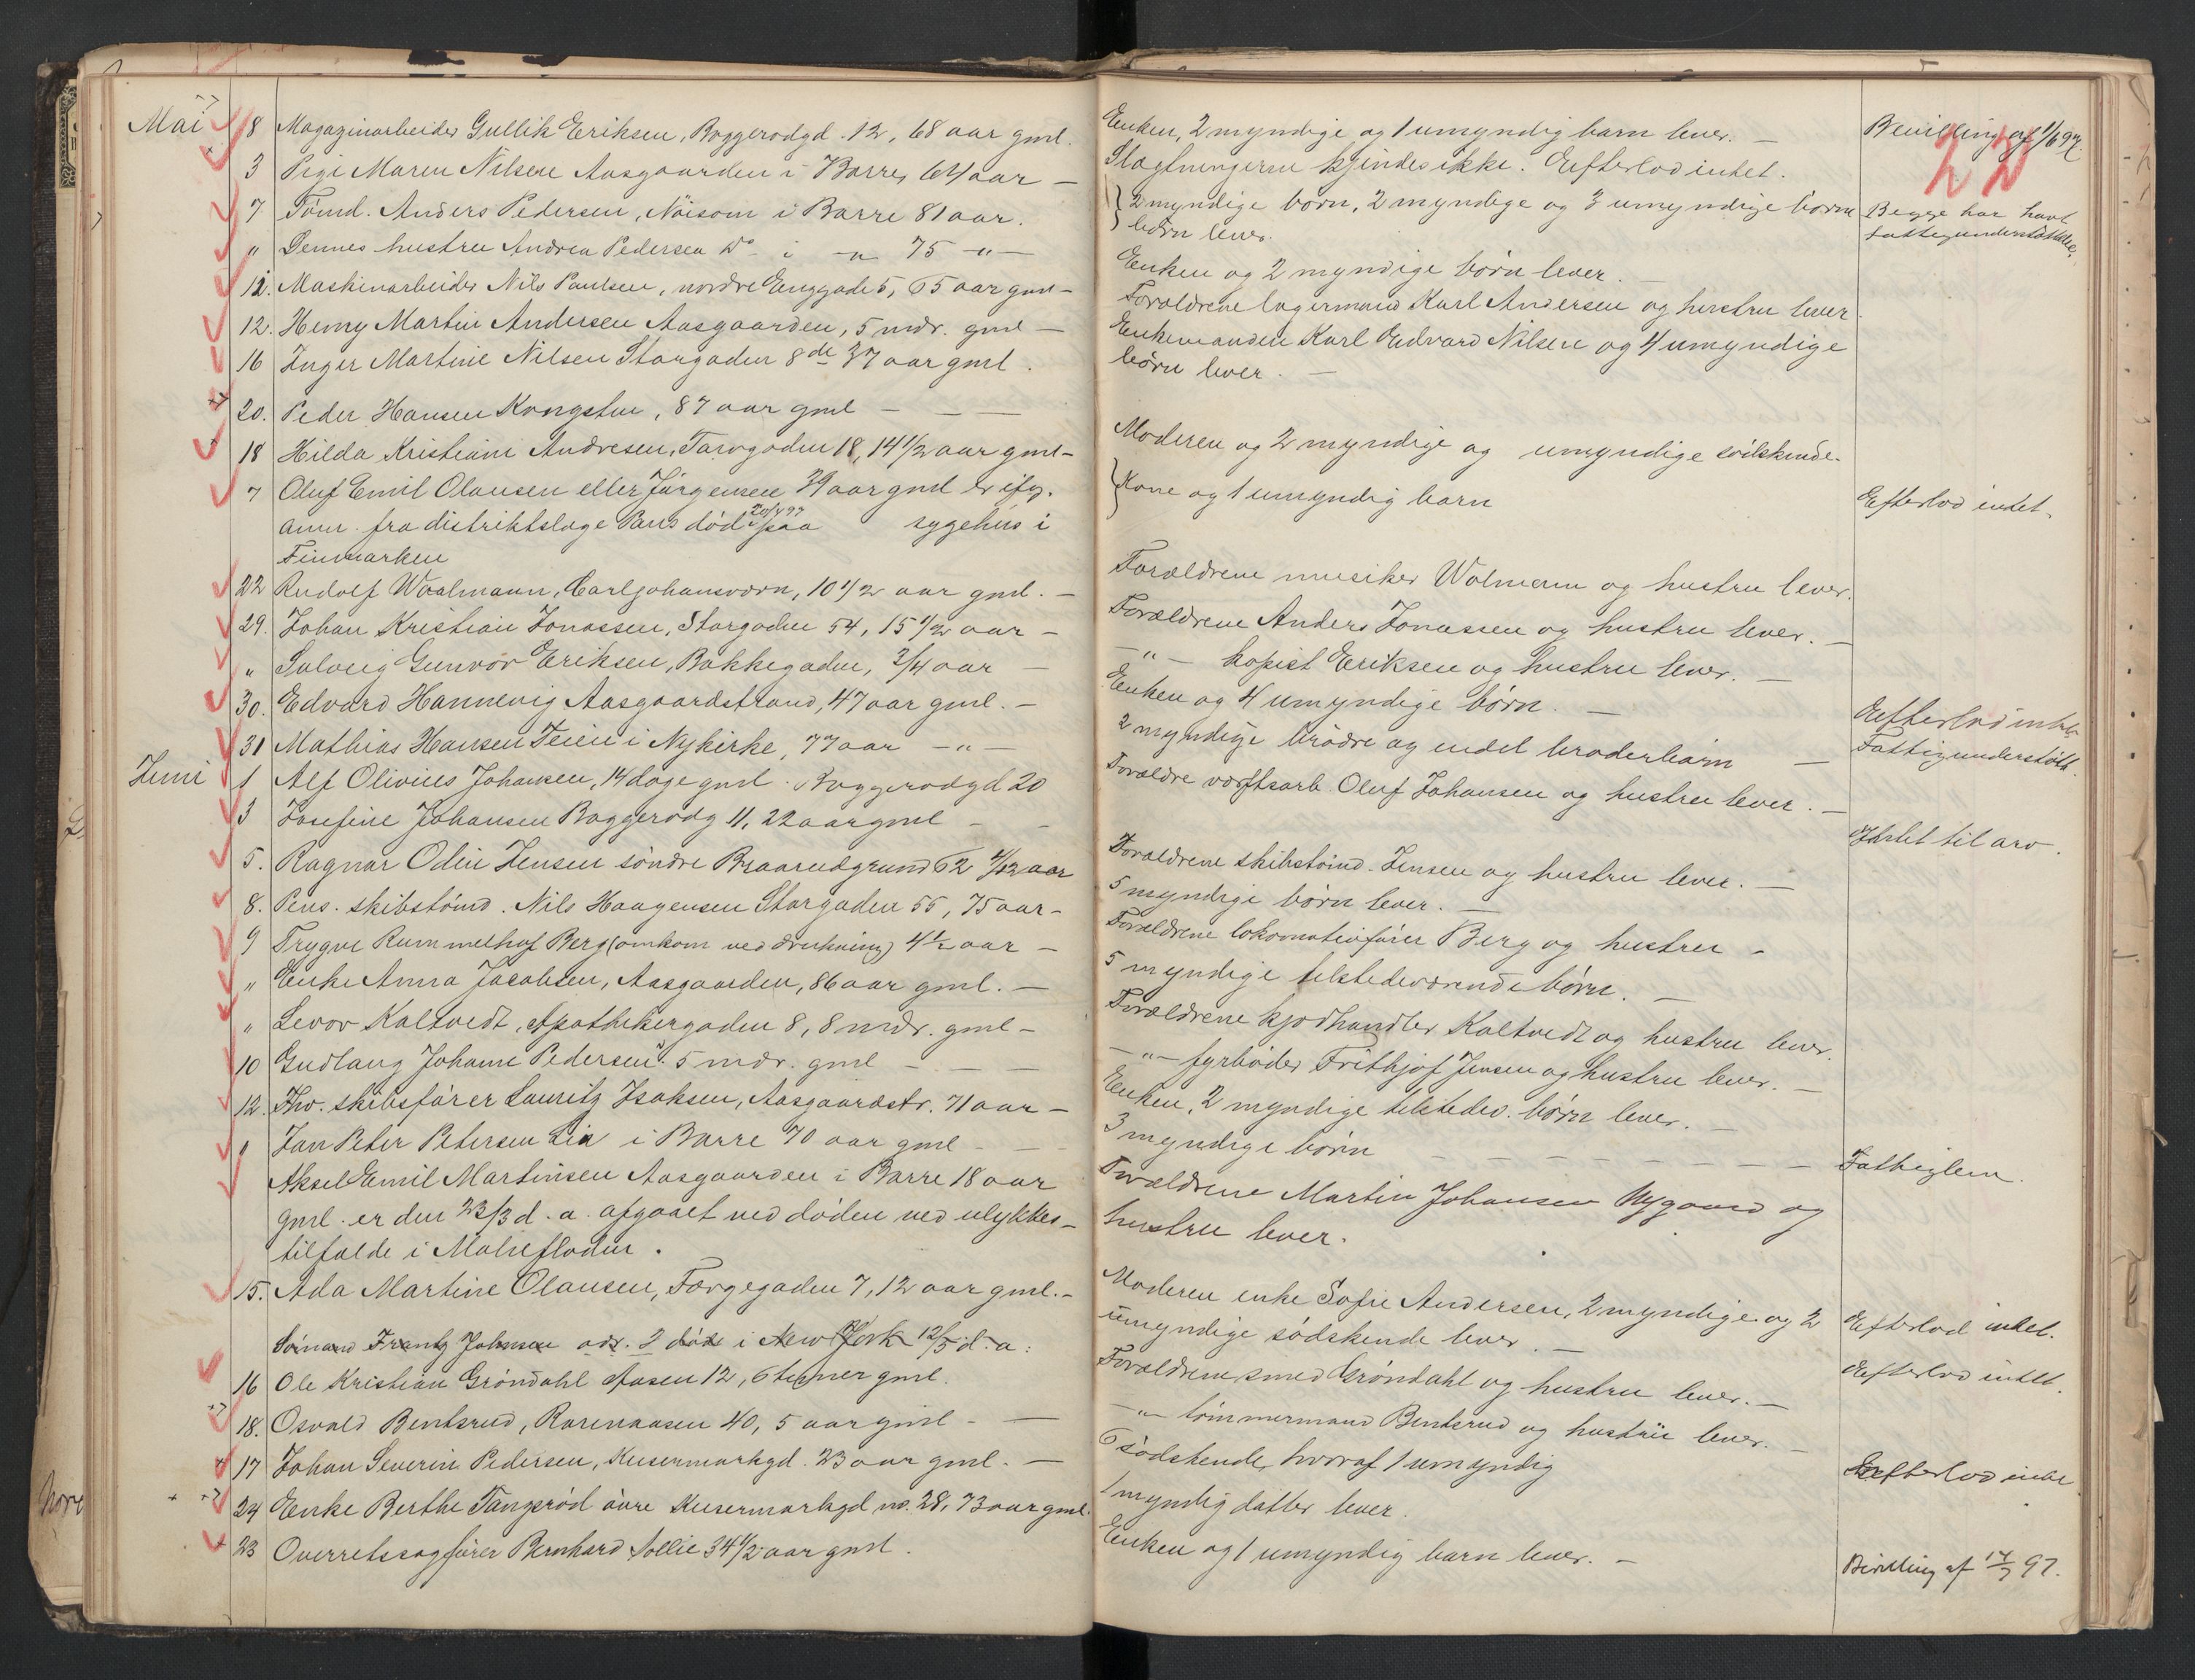 Mai 8 Magazinarbeider Gullik Eriksen, Baggerødgd. 12, 68 aar gml.
3 Pige Maren Nilsen Aasgaarden i Borre, 64 aar —
7 Tømd. Anders Pedersen, Nøisom i Borre 81 aar.
" Dennes hustru Andrea Pedersen Do i -"- 75 -"-
12. Maskinarbeider Nils Paulsen, nordre Enggade 5, 65 aar gml -
12. Henry Martin Andersen Aasgaarden, 5 mdr. gml —
16 Inger Martine Nilsen Storgaden 8de 37 aar gml.
20. Peder Hansen Kongstu, 87 aar gml — — —
18 Hilda Kristiani Andresen, Farvgaden 18, 14 1/2 aar gml -
7 Oluf Emil Olausen eller Jürgensen 39 aar gml er ifg.
anm. fra distriktslæge død 20/4 97 paa sygehus i
Finmarken
22 Rudolf Woalmann, Carljohansværn, 10 1/2 aar gml. -
29. Johan Kristian Jonassen, Storgaden 54, 15 1/2 aar -
" Solveig Gunvor Eriksen, Bakkegaden, 3/4 aar —
30. Edvard Hannevig Aasgaardstrand, 47 aar gml. -
31 Mathias Hansen Teien i Nykirke, 77 aar -"-
Juni 1 Alf Olivius Johansen, 14 dage gml. Baggerødgd 20
3 Josefine Johansen Baggerødg 11, 22 aar gml - -
5. Ragnar Odin Jensen søndre Braarudgrund 62 4/12 aar
8. Pens. skibstømd. Nils Haagensen Storgaden 55, 75 aar -
9 Trygve Rummelhof Berg (omkom ved drukning) 4 1/2 aar -
" Enke Anna Jacobsen, Aasgaarden, 86 aar gml. —
" Levor Kaltvedt, Apothekergaden 8, 8 mdr. gml -
10 Gudlaug Johanne Pedersen 5 mdr. gml - — —
12. Fhv. skibsfører Lauritz Isaksen, Aasgaardstr. 71 aar —
" Jan Peter Petersen Lia i Borre 70 aar gml - —
Aksel Emil Martinsen Aasgaarden i Borre 18 aar
gml. er den 23/3 d. a. afgaaet ved døden ved ulykkes-
tilfælde i Malsefloden.
15. Ada Martine Olausen, Færgegaden 7, 12 aar gml. -
Sømand Frantz Johnsen adr. 2 død i New York 12/5 d. a:
16 Ole Kristian Grøndahl Aasen 12, 6 timer gml.
18. Osvald Bentsrud, Rørenaasen 40, 5 aar gml - —
17 Johan Severin Pedersen, Keisermarkgd. 23 aar gml. —
24 Enke Berthe Tangerød øvre Keisermarkgd no. 28, 73 aar gml.
23 Overretssagfører Bernhard Sollie 34 1/2 aar gml.
Enken, 2 myndige og 1 umyndig barn lever. —
Slægtningerne kjendes ikke. Efterlod intet.
2 myndige børn, 2 myndige og 3 umyndige børne
børn lever.
Enken og 2 myndige børn lever. —
Forældrene lagermand Karl Andersen og hustru lever
Enkemanden Karl Edvard Nilsen og 4 umyndige
børn lever. —
Moderen og 2 myndige og umyndige södskende.
Kone og 1 umyndig barn
Forældrene musiker Wolmann og hustru lever.
Forældrene Anders Jonassen og hustru lever. —
-"- kopist Eriksen og hustru lever. —
Enken og 4 umyndige børn. —
2 myndige brødre og endel broderbørn —
Forældre værftsarb. Oluf Johansen og hustru lever. —
Forældrene skibstømd. Jensen og hustru lever. —
5 myndige børn lever. —
Forældrene lokomotivfører Berg og hustru -
5 myndige tilstedeværende børn. —
Forældrene kjødhandler Kaltvedt og hustru lever.
-"- fyrbøder Frithjof Jensen og hustru lever. —
Enken, 2 myndige tilstedev. børn lever. —
3 myndige børn — — — — — — —
Forældrene Martin Johansen Nygaard og
hustru lever.
Moderen enke Sofie Andersen, 2 myndige og 2
umyndige sødskende lever. —
Forældrene smed Grøndahl og hustru lever. —
-"- tømmermand Bentsrud og hustru lever. —
6 sødskende, hvoraf 1 umyndig
1 myndig datter lever.
Enken og 1 umyndig barn lever. —
Bevilling af 1/6 97.
Begge har havt
fattigunderstøttelse.
Efterlod intet.
Efterlod intet
Fattigunderstøtt.
Intet til arv.
Fattiglem.
Efterlod intet.
Efterlod intet.
Efterlod intet
Bevilling af 14/7 97.